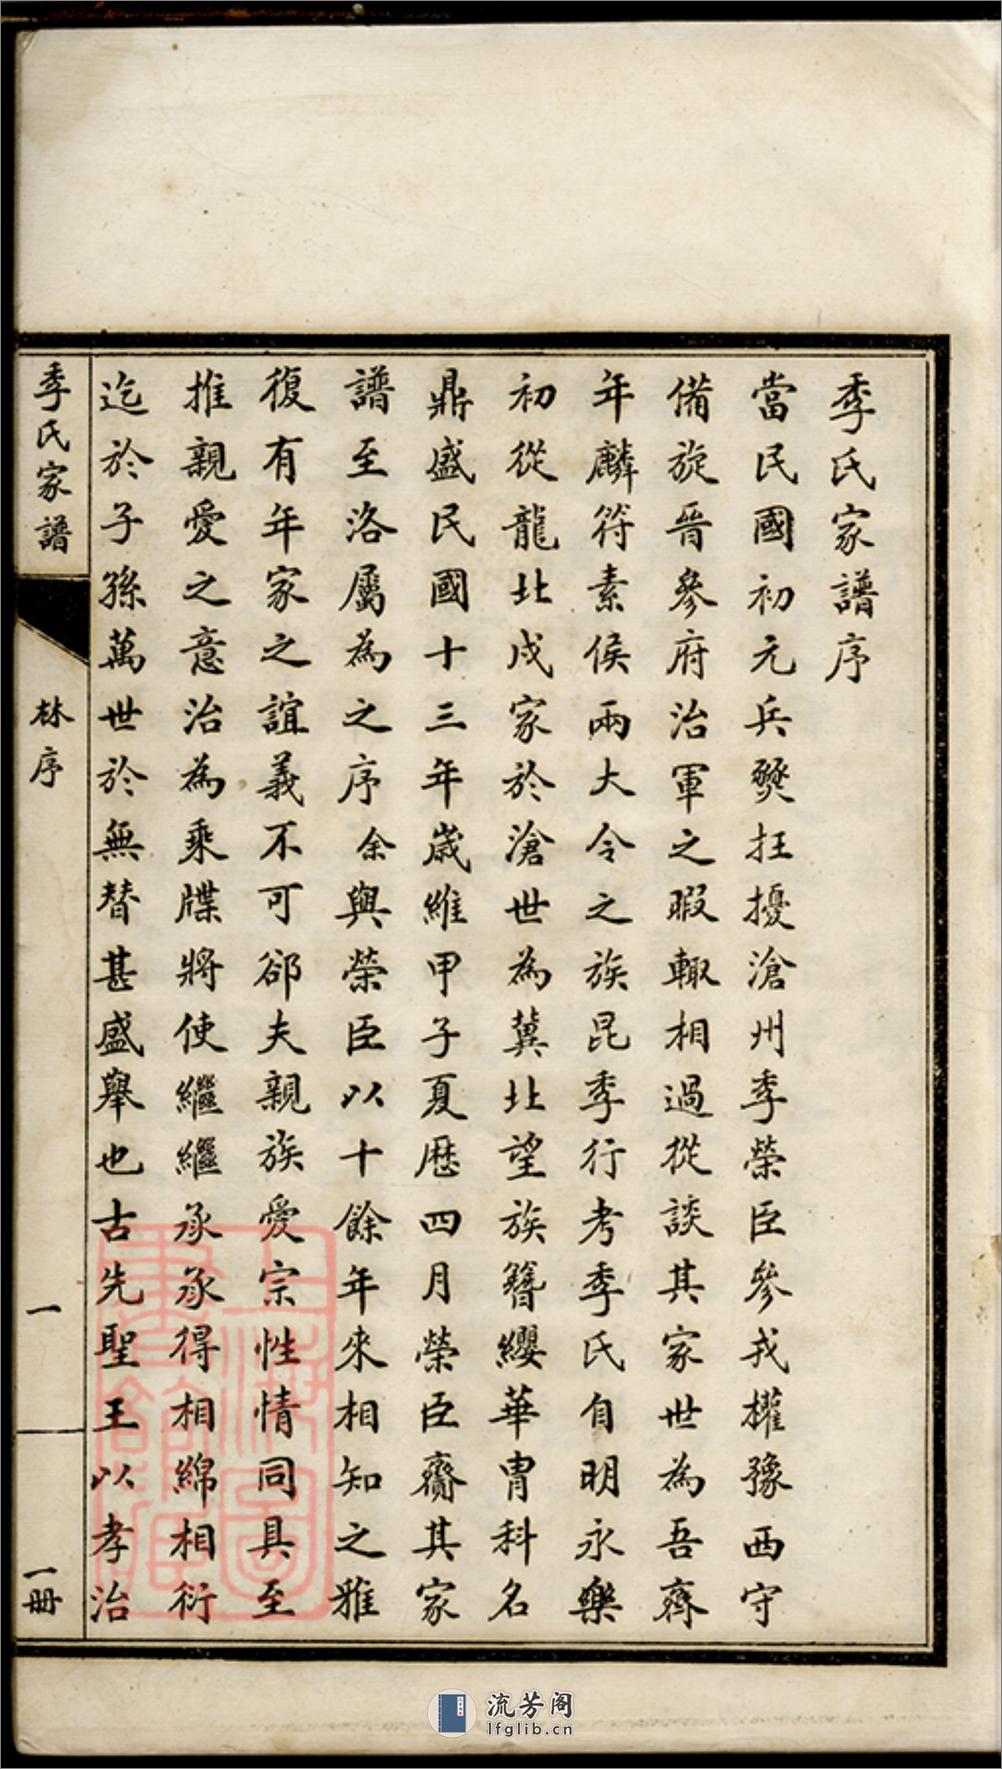 季氏家譜序
當民國初元兵燹抂擾滄州季榮臣參戎權豫西守
備旋晉參府治軍之暇輙相過從談其家世為吾齊
年麟符素侯兩大令之族昆季行考季氏自明永樂
初從龍北戍家於滄世為冀北望族簪纓華冑科名
鼎盛民國十三年歲維甲子夏歷四月榮臣齎其家
譜至洛屬為之序余與榮臣以十餘年來相知之雅
復有年家之誼義不可郤夫親族愛宗性情同具至
推親愛之意治為乘牒將使繼繼承承得相綿相衍
迄於子孫萬世於無替甚盛舉也古先聖王以孝治
季氏家譜
林序
一
一冊
上海圖書館藏
流芳阁
lfglib.cn